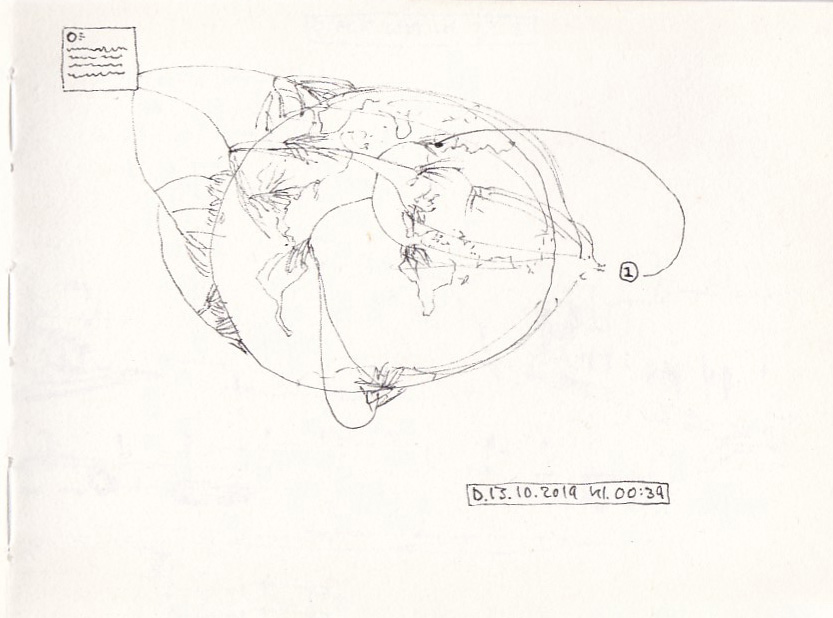 1
D.13.10.2019 kl. 00:39